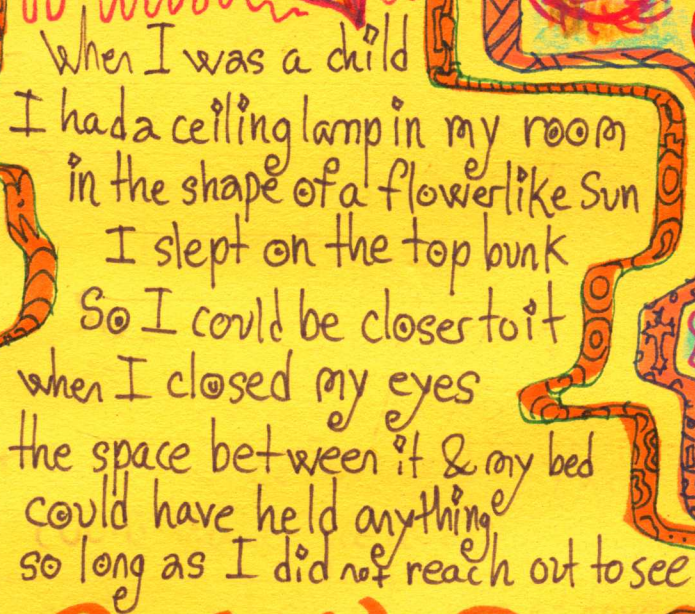 When I was a child
I had a ceiling lamp in my room
in the shape of a flowerlike Sun
I slept on the top bunk
So I could be closer to it
when I closed my eyes
the space between it & my bed
could have held anything
so long as I did not reach out to see